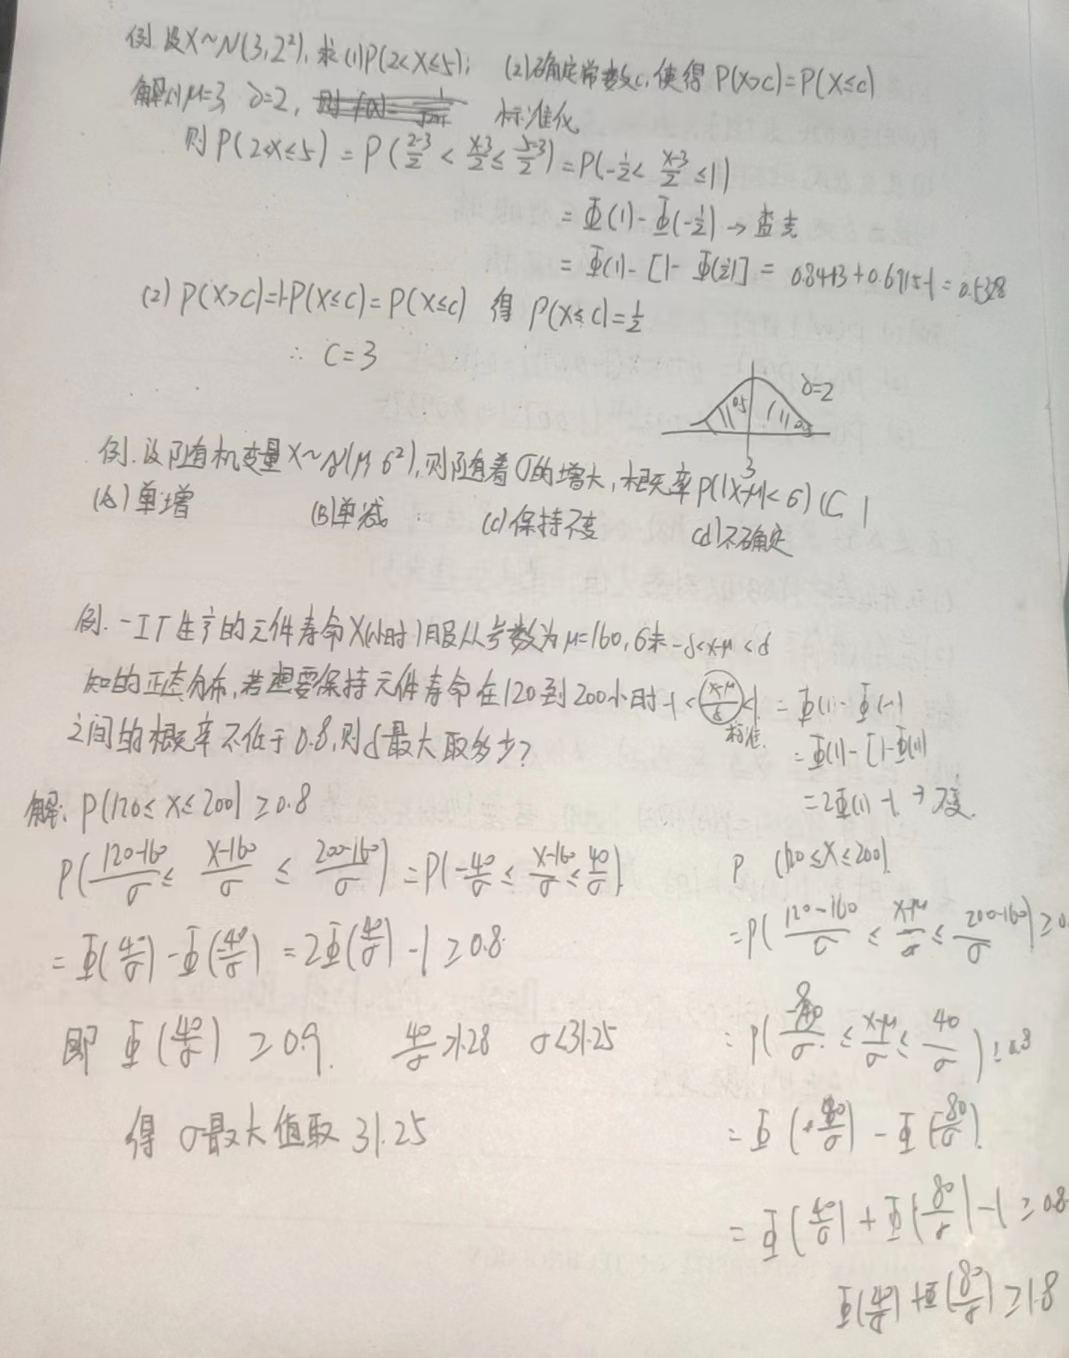 例 设X~N(3,2²), 求(1)P(2<X≤5); (2)确定常数c,使得 P(X>c)=P(X≤c)
解(1) μ=3, σ=2, 标准化
则 P(2<X≤5) = P(2-3/2 < X-3/2 ≤ 5-3/2) = P(-1/2 < X-3/2 ≤ 1)
= Φ(1) - Φ(-1/2) → 查表
= Φ(1) - [1 - Φ(1/2)] = 0.8413 + 0.6915 - 1 = 0.5328
(2) P(X>c)=1-P(X≤c)=P(X≤c) 得 P(X≤c)=1/2
∴ C=3
σ=2
0.5
3
例.设随机变量X~N(μ,σ²),则随着σ的增大,概率P(|X-μ|<σ) (C )
(A)单增 (B)单减 (C)保持不变 (d)不确定
例.一工厂生产的元件寿命X(小时)服从参数为μ=160,σ未
知的正态分布,若想要保持元件寿命在120到200小时
之间的概率不低于0.8,则σ最大取多少?
-σ<X-μ<σ
-1 < X-μ/σ < 1 = Φ(1) - Φ(-1)
标准.
= Φ(1) - [1-Φ(1)]
= 2Φ(1) - 1 → 不变.
解: P(120≤X≤200) ≥0.8
P(120-160/σ ≤ X-160/σ ≤ 200-160/σ) = P(-40/σ ≤ X-160/σ ≤ 40/σ)
= Φ(40/σ) - Φ(-40/σ) = 2Φ(40/σ) - 1 ≥ 0.8
即 Φ(40/σ) ≥ 0.9. 40/σ>1.28 σ<31.25
得 σ最大值取 31.25
P (120≤X≤200)
= P(120-160/σ ≤ X-μ/σ ≤ 200-160/σ) ≥0.
= P( /σ ≤ X-μ/σ ≤ 40/σ) ≥0.8
= Φ(40/σ) - Φ(-80/σ).
= Φ(40/σ) + Φ(80/σ) - 1 ≥ 0.8
Φ(40/σ) + Φ(80/σ) ≥ 1.8